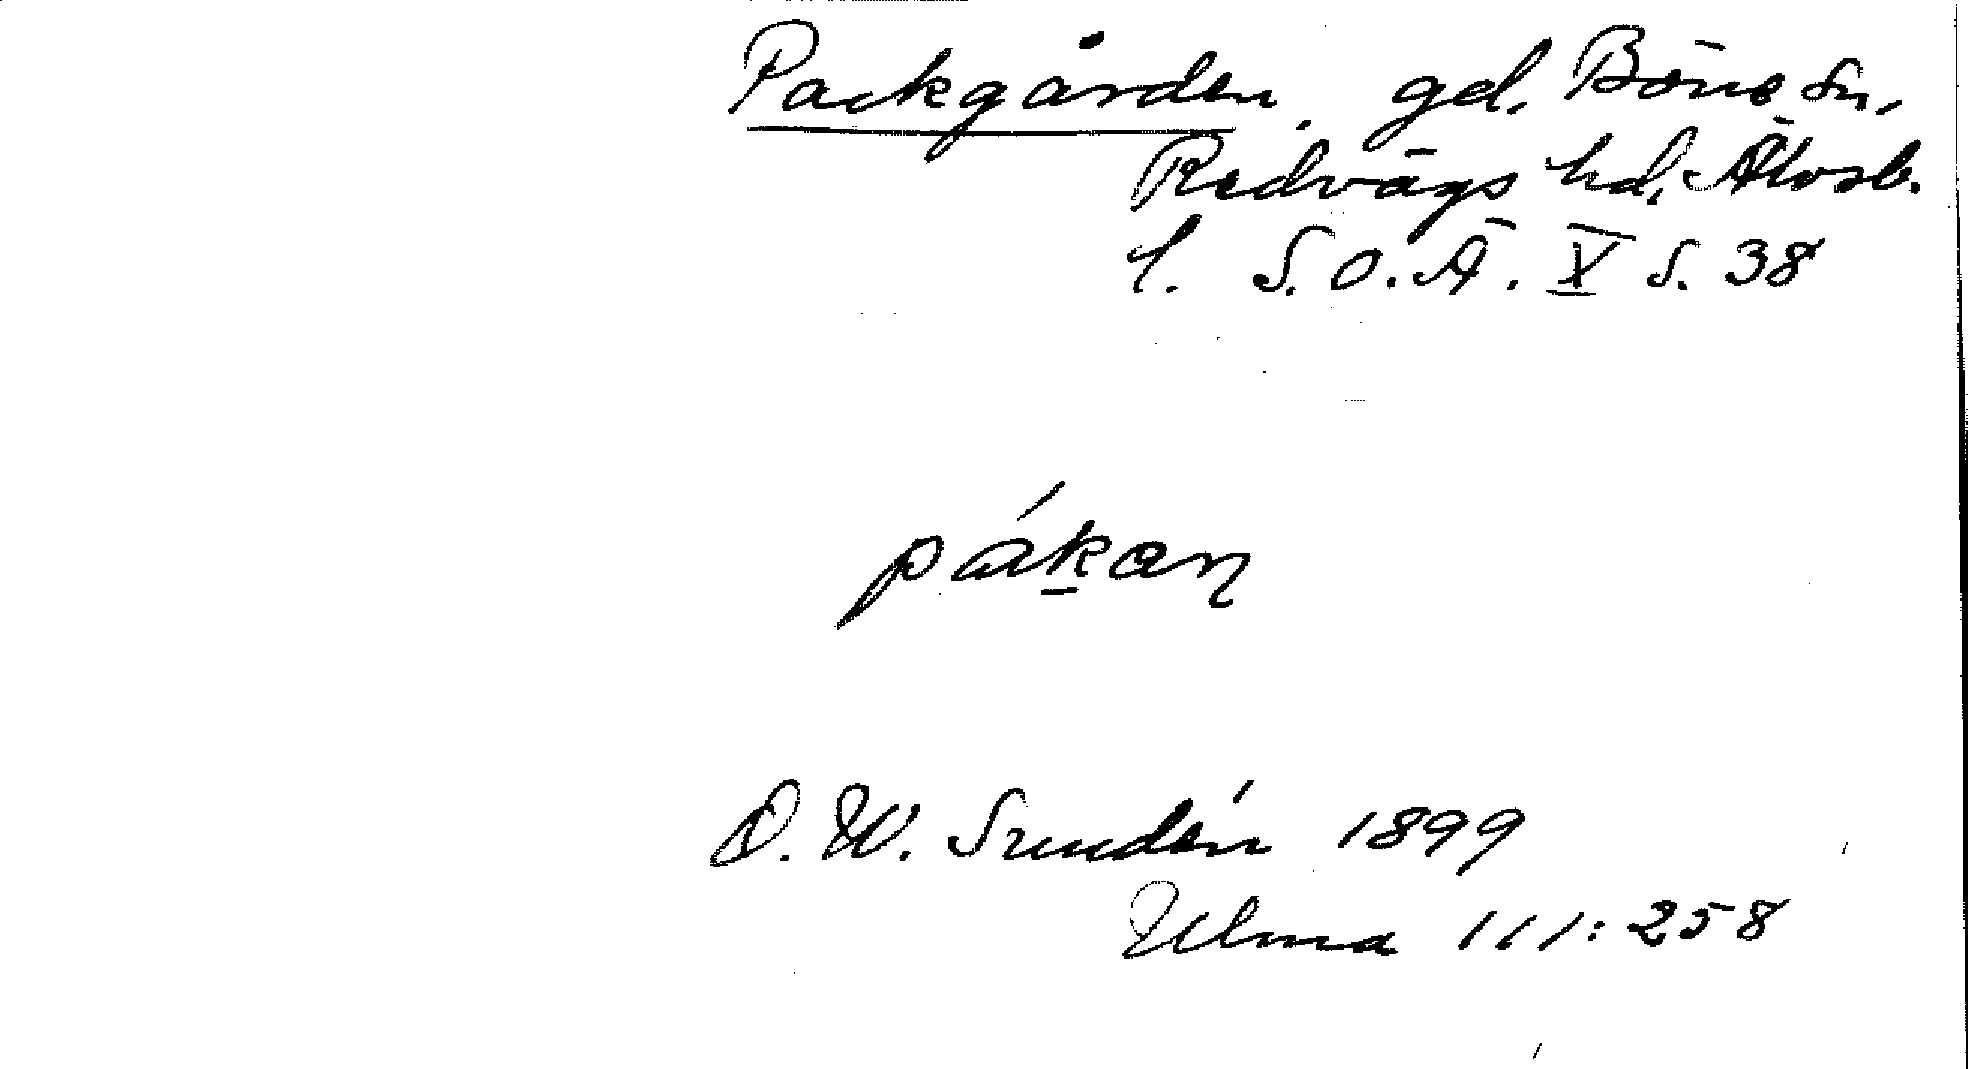 Packgården, gd, Böne sn,
Redvägs hd, Älvsb.
l. S.O.Ä. X s. 38
pákan
D. W. Sundén 1899
Ulma 111:258